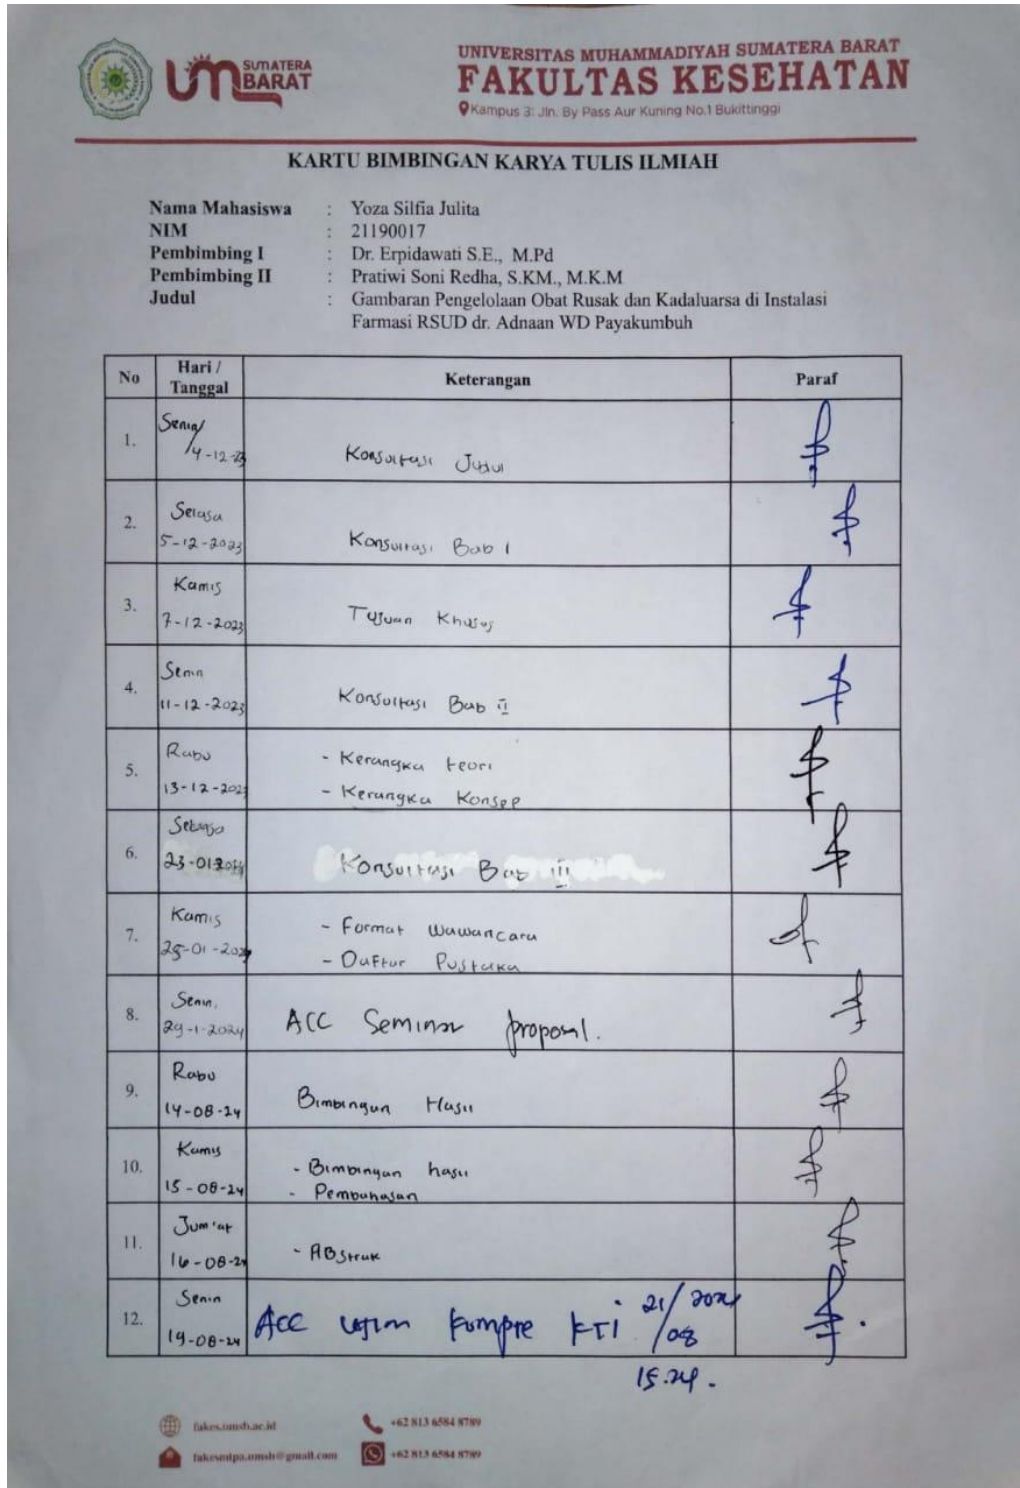 UM SUMATERA BARAT
UNIVERSITAS MUHAMMADIYAH SUMATERA BARAT
FAKULTAS KESEHATAN
Kampus 3: Jln. By Pass Aur Kuning No.1 Bukittinggi
KARTU BIMBINGAN KARYA TULIS ILMIAH
Nama Mahasiswa : Yoza Silfia Julita
NIM : 21190017
Pembimbing I : Dr. Erpidawati S.E., M.Pd
Pembimbing II : Pratiwi Soni Redha, S.KM., M.K.M
Judul : Gambaran Pengelolaan Obat Rusak dan Kadaluarsa di Instalasi
Farmasi RSUD dr. Adnaan WD Payakumbuh
No Hari / Tanggal Keterangan Paraf
1. Senin/ 4-12-23 Konsultasi Judul
2. Selasa 5-12-2023 Konsultasi Bab I
3. Kamis 7-12-2023 Tujuan Khusus
4. Senin 11-12-2023 Konsultasi Bab II
5. Rabu 13-12-2023 - Kerangka teori
- Kerangka Konsep
6. 23-01-2024 Konsultasi Bab III
7. Kamis 25-01-2024 - Format Wawancara
- Daftar Pustaka
8. Senin, 29-1-2024 ACC Seminar proposal.
9. Rabu 14-08-24 Bimbingan Hasil
10. Kamis 15-08-24 - Bimbingan hasil
- Pembahasan
11. Jum'at 16-08-24 - ABstrak
12. Senin 19-08-24 ACC Ujian kompre KTI 21/08 2024
fakes.umsb.ac.id +62 813 6584 8789
fakesmipa.umsb@gmail.com +62 813 6584 8789